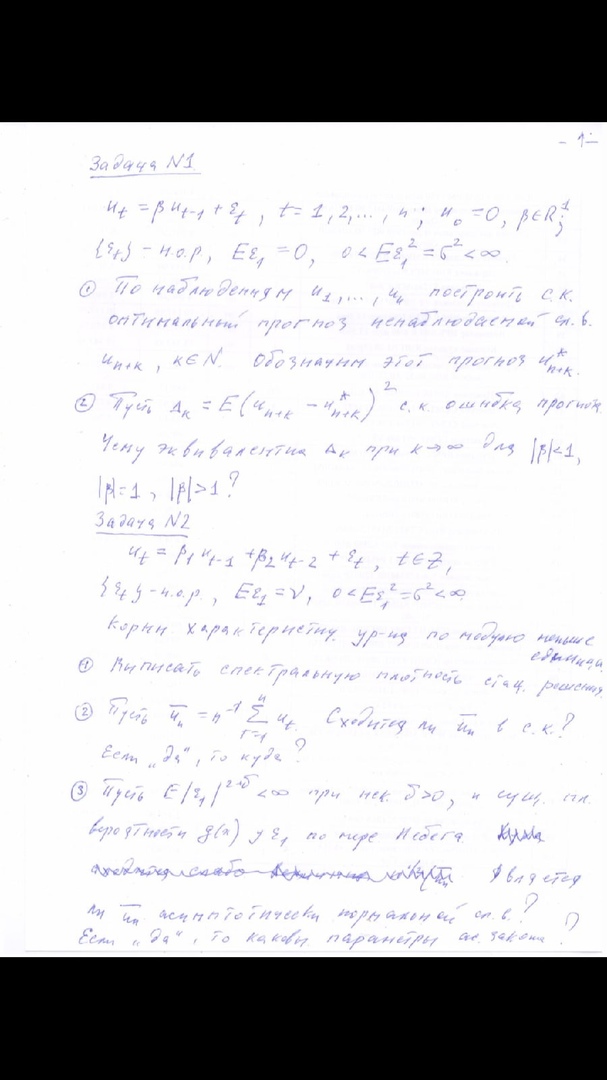 - 1 -
Задача N1
u_t = β u_{t-1} + ε_t, t = 1, 2, ..., n; u_0 = 0, β ∈ R^1;
{ε_t} - н.о.р, Eε_1 = 0, 0 < Eε_1^2 = σ^2 < ∞.
① По наблюдениям u_1, ..., u_n построить с.к.
оптимальный прогноз ненаблюдаемой сл. в.
u_{n+k}, k ∈ N. Обозначим этот прогноз u*_{n+k}.
② Пусть Δ_k = E(u_{n+k} - u*_{n+k})^2 с.к. ошибка прогноза.
Чему эквивалентна Δ_k при k → ∞ для |β|<1,
|β|=1, |β|>1?
Задача N2
u_t = β_1 u_{t-1} + β_2 u_{t-2} + ε_t, t ∈ Z,
{ε_t} - н.о.р., Eε_1 = ν, 0 < Eε_1^2 = σ^2 < ∞.
Корни характеристич. ур-ия по модулю меньше
единицы.
① Выписать спектральную плотность стац. решения
② Пусть ū_n = n^{-1} Σ_{t=1}^{n} u_t. Сходится ли ū_n в с.к.?
Если „да", то куда?
③ Пусть E|ε_1|^{2+δ} < ∞ при нек. δ>0, и сущ. пл.
вероятности g(x) у ε_1 по мере Лебега.
Является
ли ū_n асимптотически нормальной сл. в.?
Если „да", то каковы параметры ас. закона?